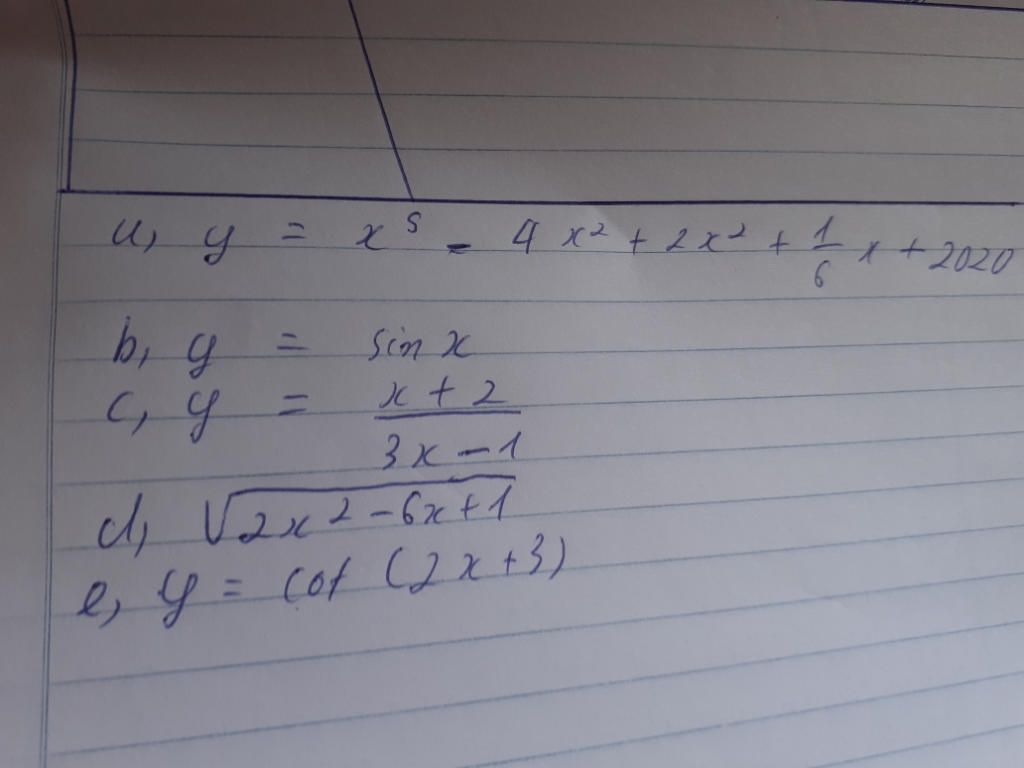 a, y = x⁵ - 4x² + 2x² + 1/6 x + 2020
b, y = sin x
c, y = (x + 2)/(3x - 1)
d, √(2x² - 6x + 1)
e, y = cot (2x + 3)